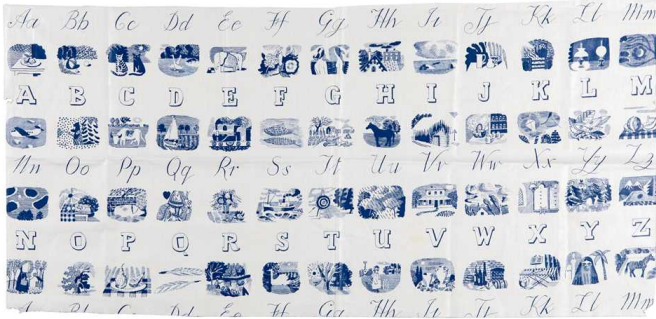 Aa Bb Cc Dd Ee Ff Gg Hh Ii Jj Kk Ll Mm
A B C D E F G H I J K L M
Nn Oo Pp Qq Rr Ss Tt Uu Vv Ww Xx Yy Zz
N O P Q R S T U V W X Y Z
Aa Bb Cc Dd Ee Ff Gg Hh Ii Jj Kk Ll Mm